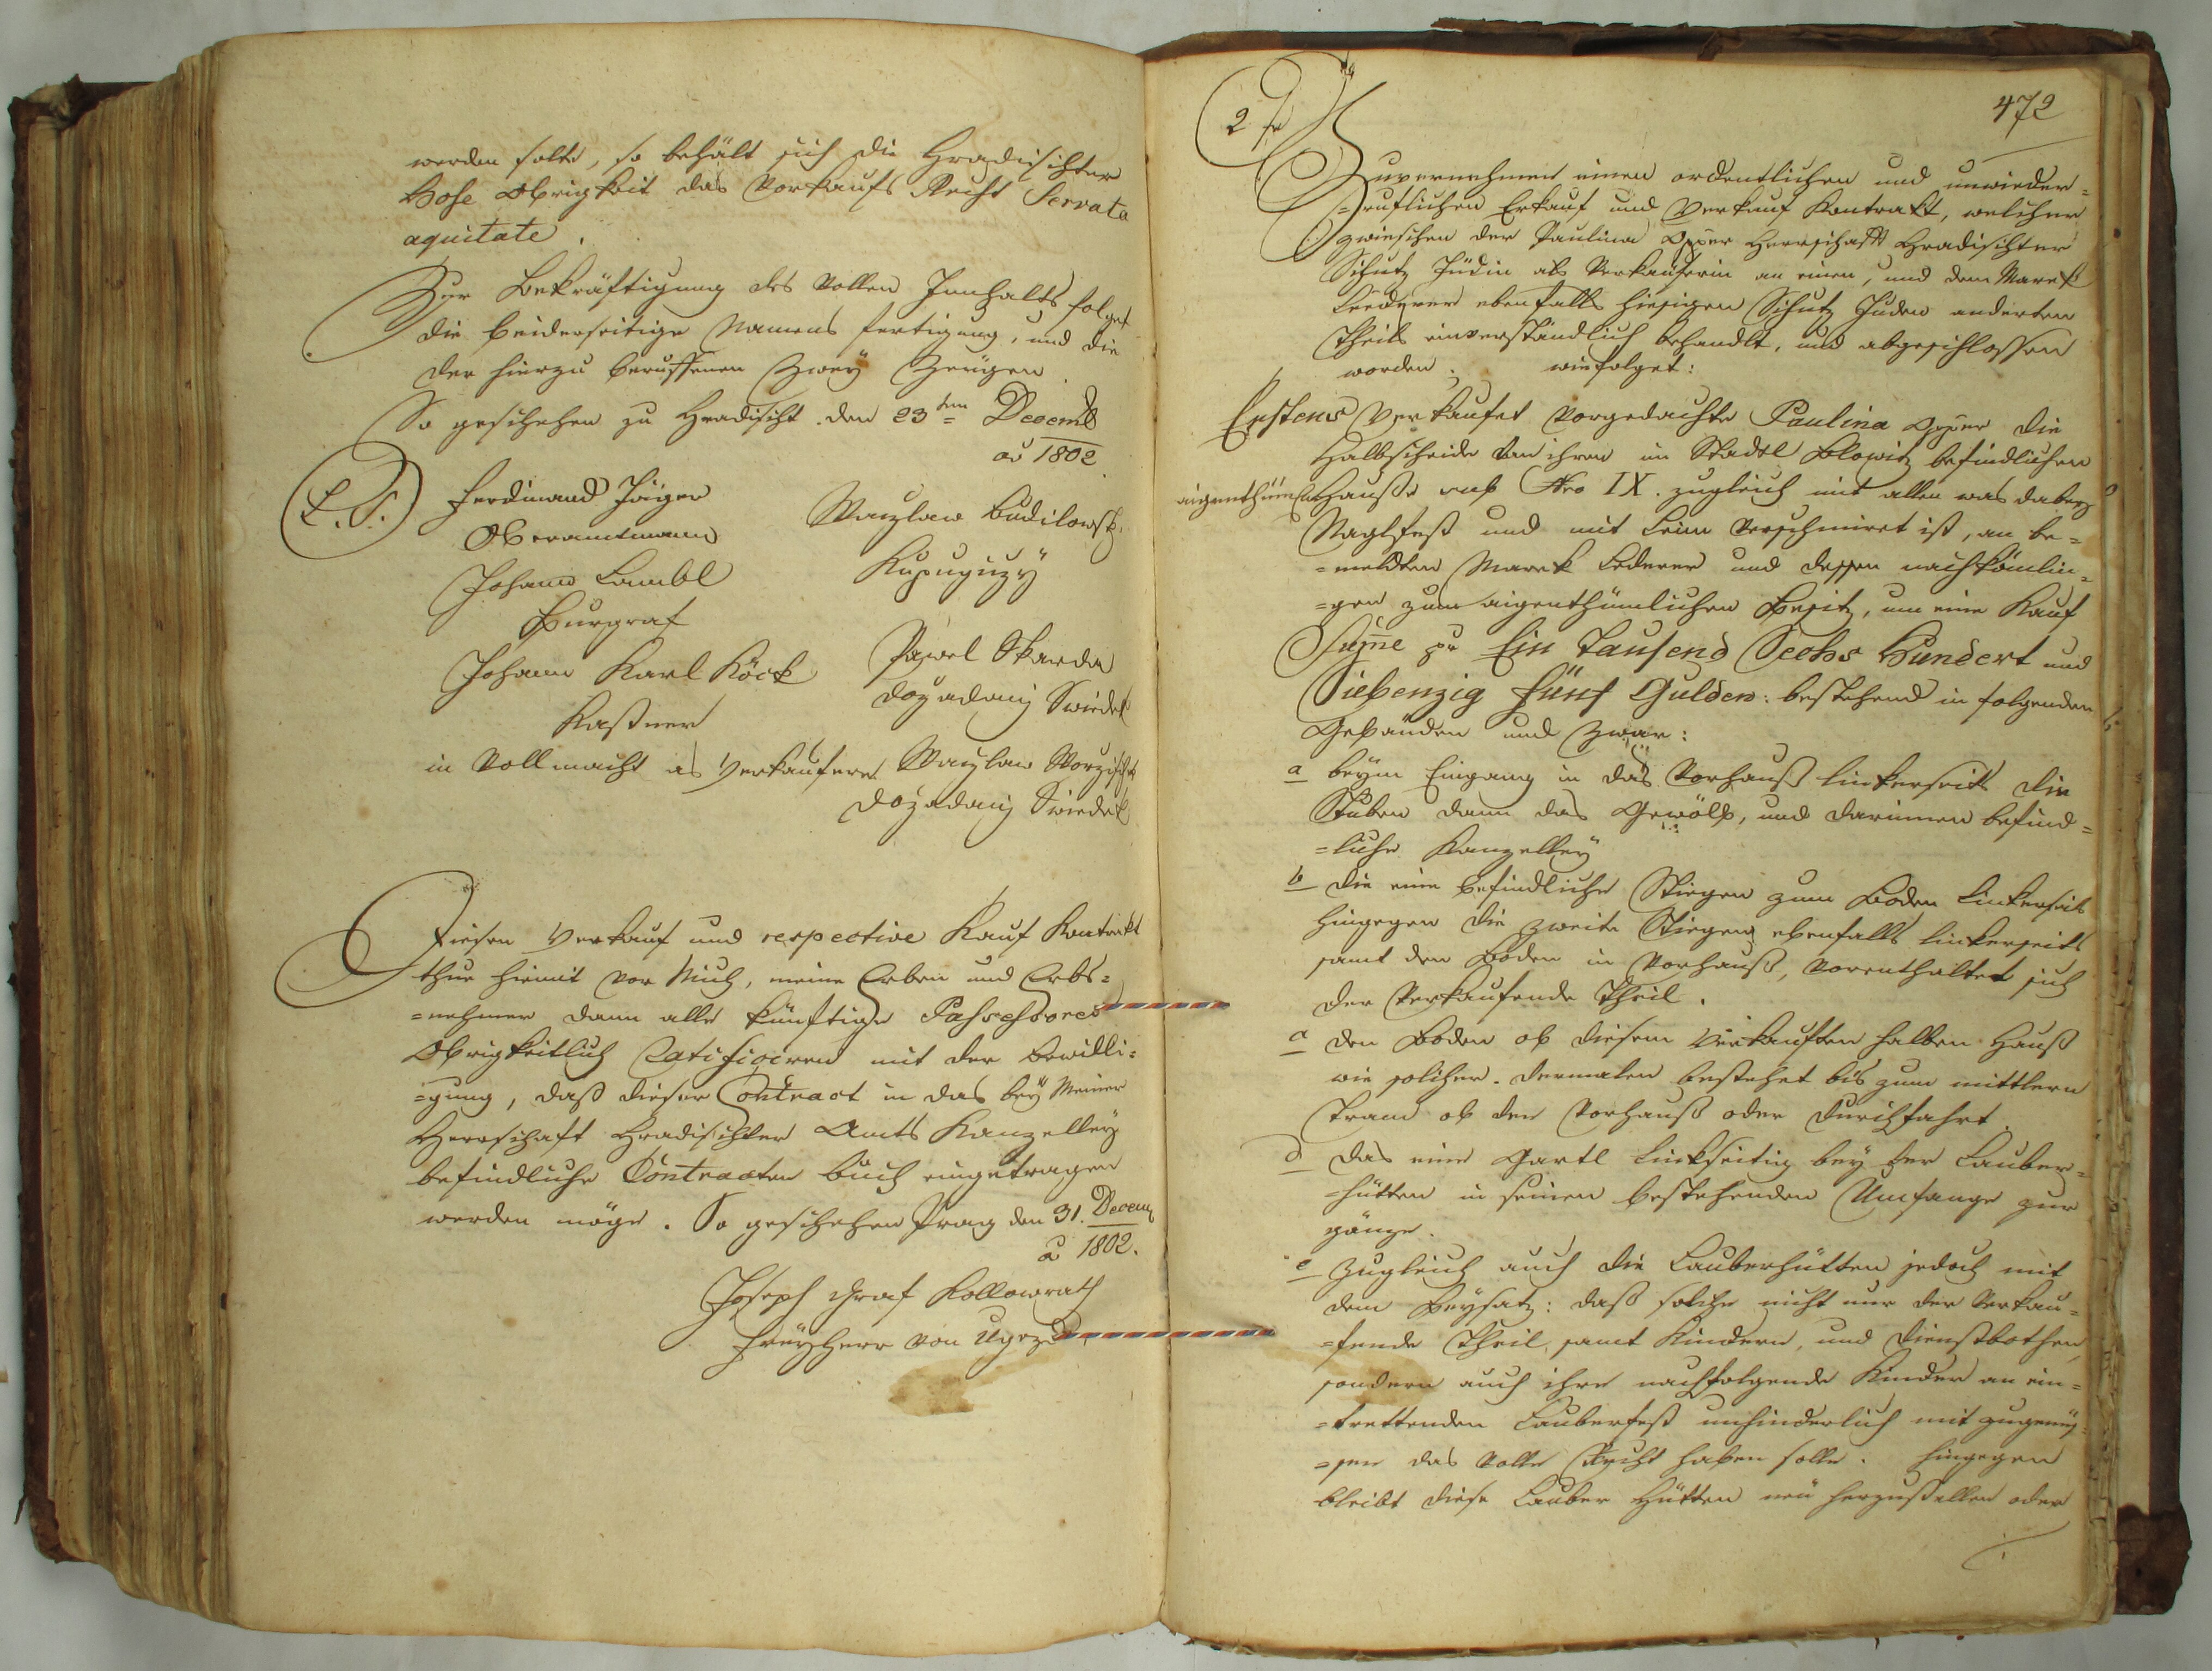 werden solte, so behält sich die Hradischter
Hohe Obrigkeit das Vorkaufs Recht Servata
aquitate.
Zur Bekräftigung des vollen Innhalts folget
die beiderseitige Namens fertigung, und die
der hierzu beruffenen Zwey Zeügen.
So geschehen zu Hradischt. den 23ten Decemb
ao 1802
L. S.
Ferdinand Jäger
Oberamtmann
Johann Lambl
Burgraf
Johann Karl Köck
Kastner
in Vollmacht als Verkaufere
Wazlaw Budilowsky
Kupugizy
Pawel Skarda
dozadany Swiedek
Wazlaw
dozadany Swiedek
Diesen Verkauf und respective Kauf Kontrakt
thue hiemit vor Mich, meine Erben und Erbs=
=nehmer dann alle künftige Possessores
Obrigkeitlich Ratificiren mit der bewilli=
=gung, daß dieser Contract in das bey Meiner
Herrschaft Hradischter Amts Kanzelley
befindliche Contracten buch eingetragen
werden möge. So geschehen Prag den 31. Decem
a 1802.
Joseph Graf Kollowrath
Freyherr von Ugezd
472
2
Zuvernehmen einen ordentlichen und unwieder=
=ruflichen Erkauf und Verkauf Kontrakt, welcher
zwieschen der Paulina Opper Herrschaft Hradischter
Schutz Jüdin als Verkauferin an einen, und dem Marek
Lederer ebenfalls hiesigen Schutz Juden anderten
Theils einverständlich behandlt, und abgeschlossen
worden. wie folget:
Erstens Verkaufet vorgedachte Paulina Opper die
Halbscheide von ihren im Stadtl Blowitz befindlichen
aigenthümlichen Hauße sub Nro IX. zugleich mit allen was dabey
Naglfest und mit Leim verschmiret ist, an be=
=meldten Marek Lederer und dessen nachkömlin=
=gen zum aigenthümlichen Besitz, um eine Kauf
Sume pr Ein Tausend Sechs Hundert und
Siebenzig fünf Gulden: bestehend in folgenden
Gebäuden und Zwar:
a beym Eingang in das Vorhauß linkerseits die
Stuben dann das Gewölb, und darinnen befind=
=liche Kanzelley
b die eine befindliche Stiegen zum Boden linkerseits
hingegen die zweite Stiegen ebenfalls linkerseits
samt den Boden in Vorhauß, vorenthaltet sich
der Verkaufende Theil.
c den Boden ob diesem Verkauften halben Hauß
wie solcher. dermalen bestehet bis zum mittlern
Tram ob den Vorhauß oder Durchfahrt.
d das eine Gartl linkseitig bey der Lauber=
=hütten in seinen bestehenden Umfange zur
gänze.
e zugleich auch die Lauberhütten jedoch mit
dem Beysatz: daß solche nicht nur der Verkau=
=fende Theil, samt Kindern, und Dienstbothen,
sondern auch ihre nachfolgende Kinder an ein=
=trettenden Lauberfest unhinderlich mit zugenüß=
=sen das volle Recht haben solle. Hingegen
bleibt diese Lauber Hütten neü herzustellen oder